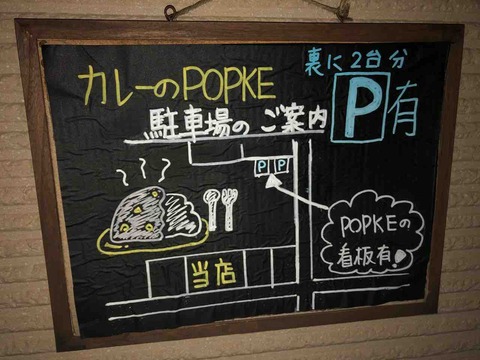 裏に2台分
カレーのPOPKE
P有
駐車場のご案内
P P
POPKEの
看板有!
当店